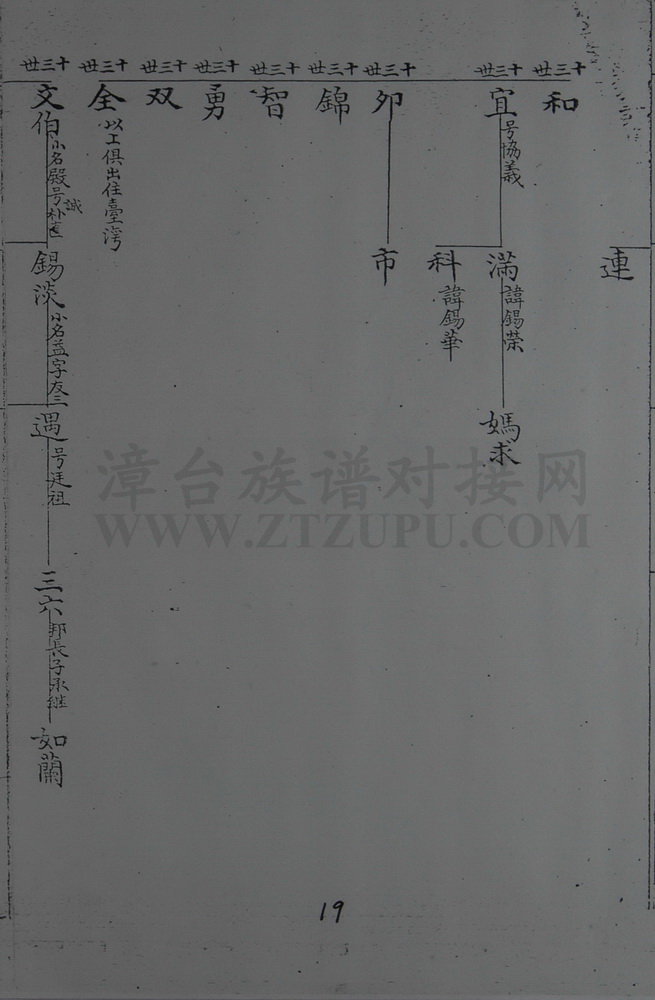 十三世 十三世 十三世 十三世 十三世 十三世 十三世 十三世 十三世
連
和
宜 号協義
滿 諱錫榮
媽求
科 諱錫華
卯
市
錦
智
勇
双
全 以工俱出住臺灣
文伯 小名殿号朴直
誠
錫淡 小名益字友三
遇 号廷祖
三六 邦長子承继
如蘭
漳台族谱对接网
WWW.ZTZUPU.COM
19